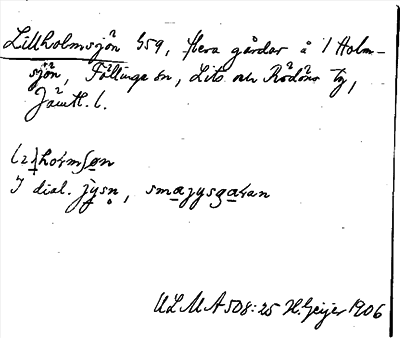 Lillholmsjön 459, flera gårdar å 1 Holm-
sjön, Föllinge sn, Lits och Rödöns tg,
Jämtl. l.
I dial. jysn, smazysgaran
ULMA 508:25 H. Geijer 1906